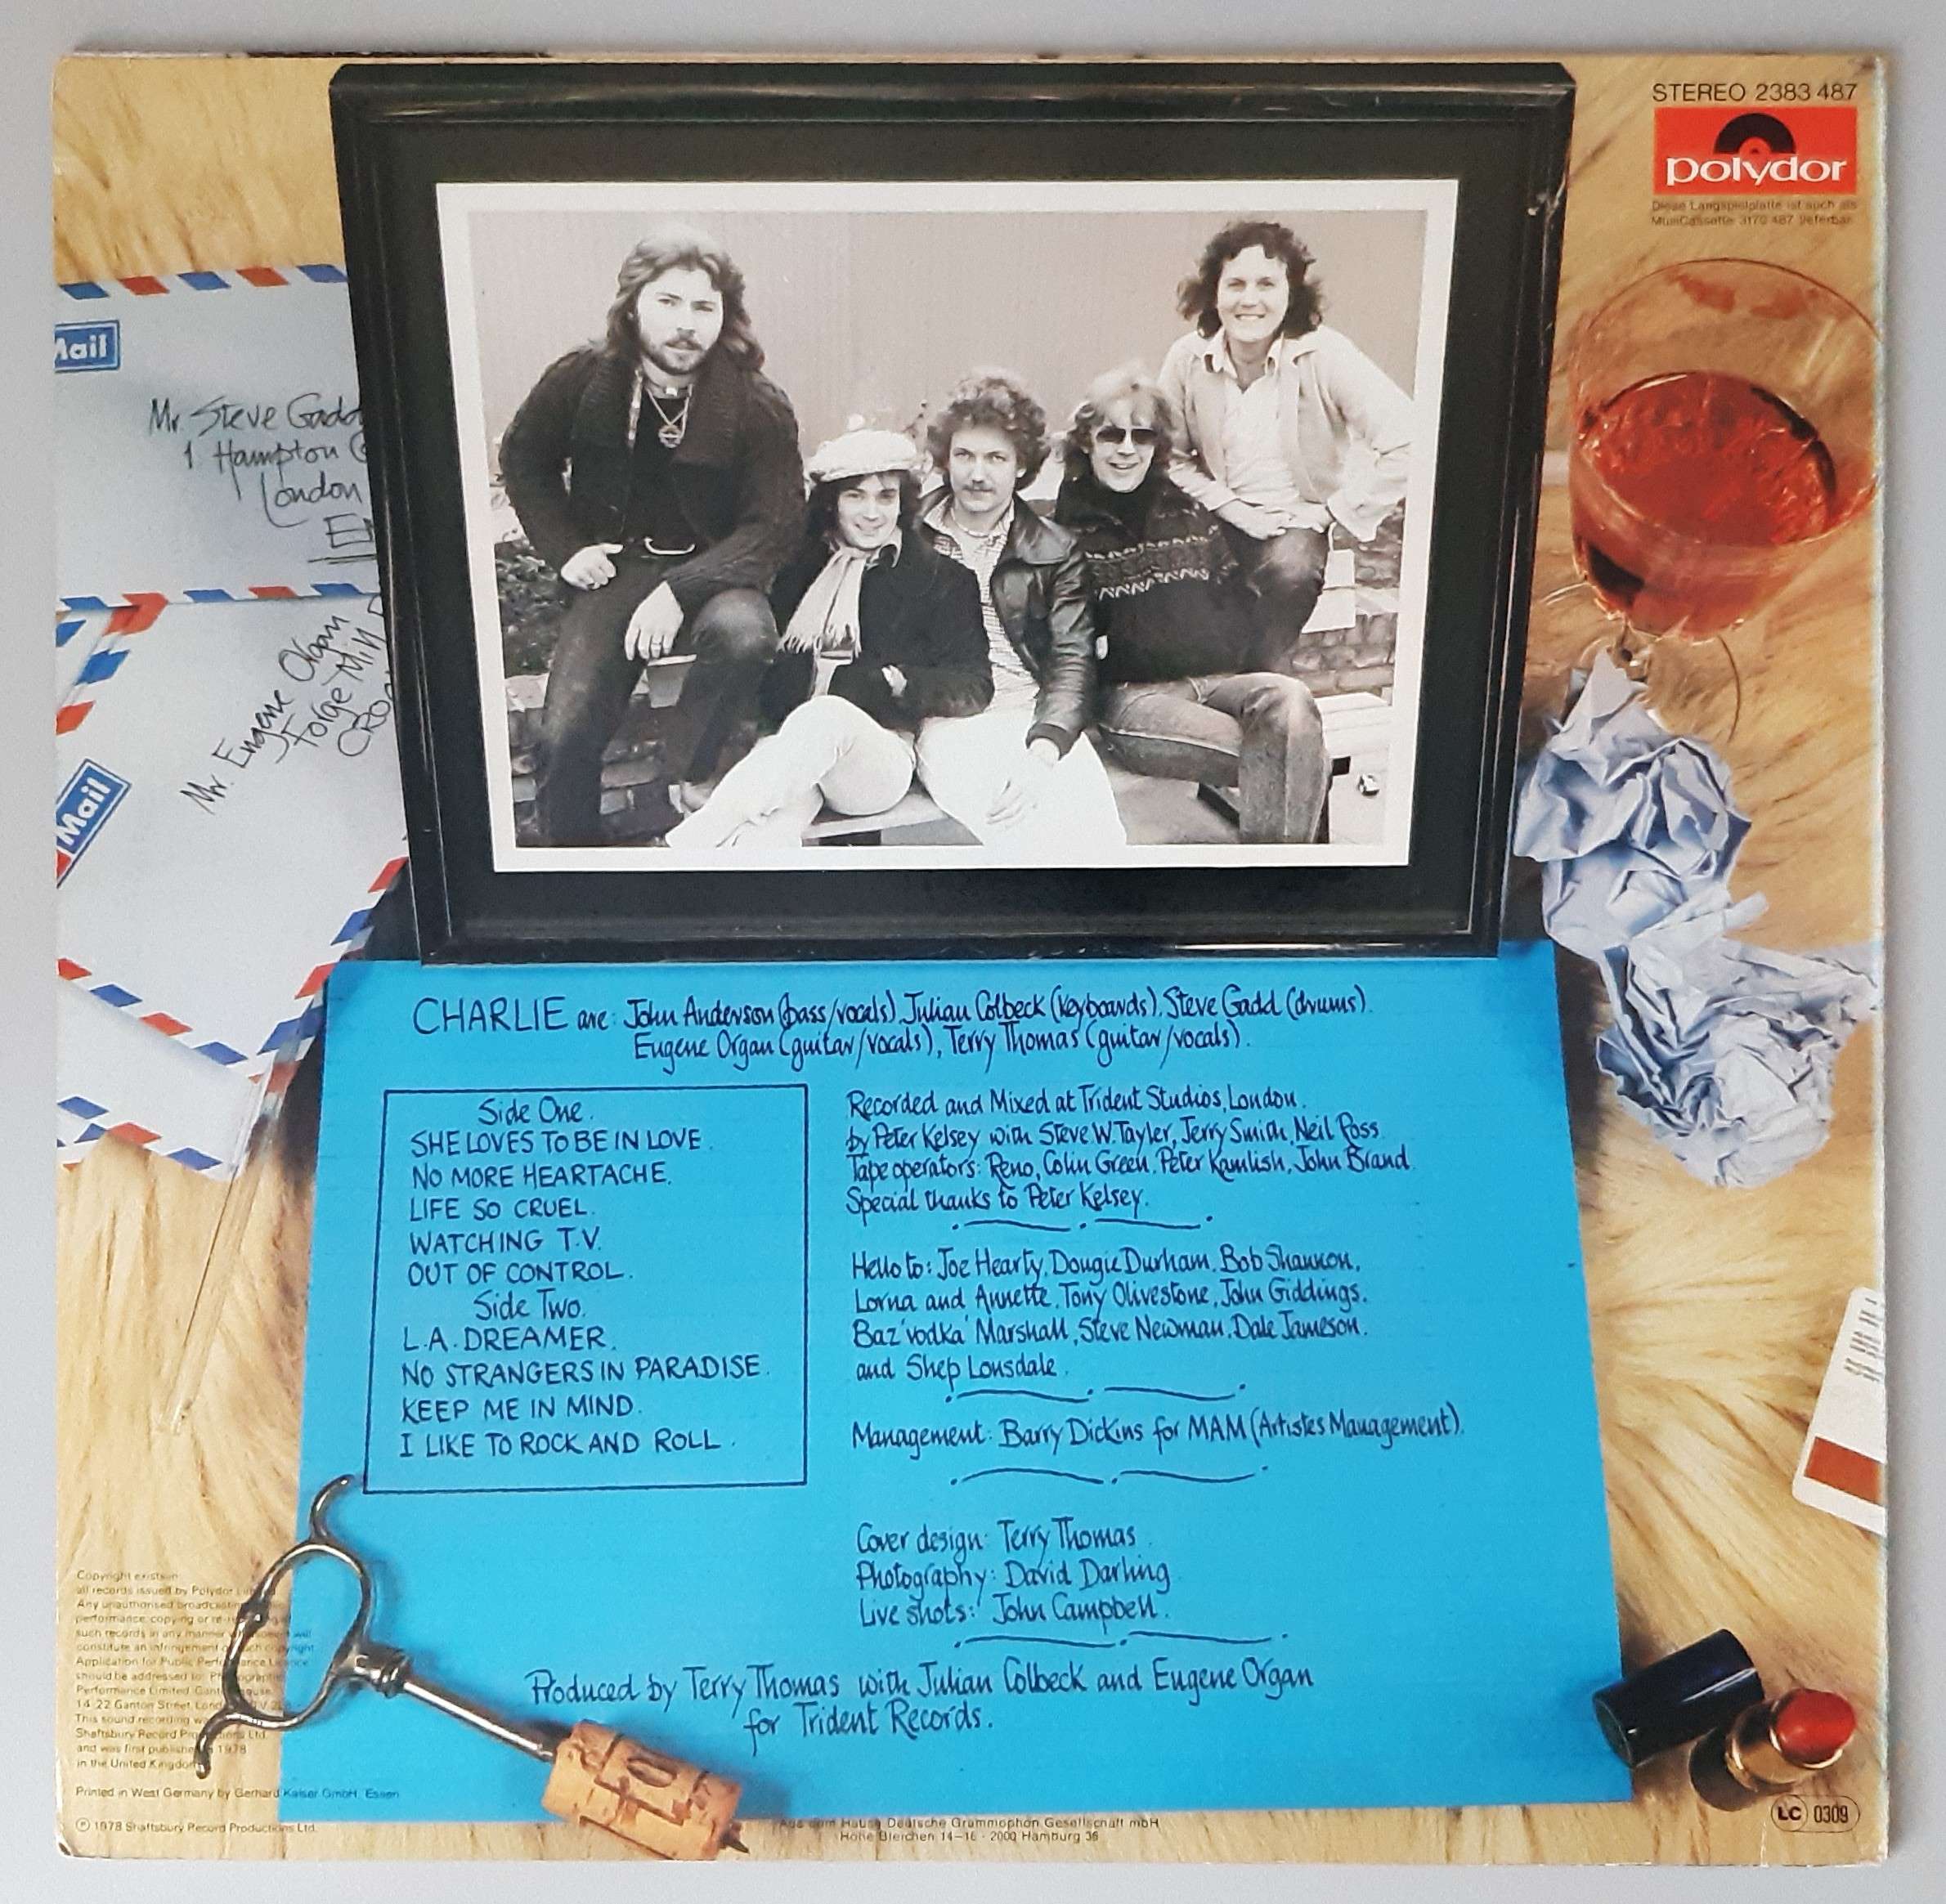 STEREO 2383 487
polydor
Diese Langspielplatte ist auch als
MusiCassette 3170 487 lieferbar
Mail
Mr. Steve Gadd
1 Hampton
London
Mr. Eugene Organ
Forge Mill
Mail
CHARLIE are: John Anderson (bass/vocals), Julian Colbeck (keyboards), Steve Gadd (drums).
Eugene Organ (guitar/vocals), Terry Thomas (guitar/vocals).
Side One.
SHE LOVES TO BE IN LOVE.
NO MORE HEARTACHE.
LIFE SO CRUEL.
WATCHING T.V.
OUT OF CONTROL.
Side Two.
L.A. DREAMER.
NO STRANGERS IN PARADISE.
KEEP ME IN MIND.
I LIKE TO ROCK AND ROLL.
Recorded and Mixed at Trident Studios, London.
by Peter Kelsey with Steve W. Tayler, Jerry Smith, Neil Ross.
Tape operators: Reno, Colin Green, Peter Kamlish, John Brand.
Special thanks to Peter Kelsey.
Hello to: Joe Hearty, Dougie Durham, Bob Shannon,
Lorna and Annette, Tony Olivestone, John Giddings.
Baz 'vodka' Marshall, Steve Newman, Dale Jameson.
and Shep Lonsdale.
Management: Barry Dickins for MAM (Artistes Management).
Cover design: Terry Thomas
Photography: David Darling
Live shots: John Campbell.
Produced by Terry Thomas with Julian Colbeck and Eugene Organ
for Trident Records.
Copyright exists in
all records issued by Polydor
Any unauthorised broadcasting
performance copying or
such records in any manner
constitute an infringement copyright
Application for Public Performance Licence
should be addressed to
Performance Limited
14-22 Ganton Street
This sound recording
Shaftsbury Record Productions Ltd.
and was first published 1978
in the United Kingdom
Printed in West Germany by Gerhard Kaiser GmbH, Essen
℗ 1978 Shaftsbury Record Productions Ltd.
Aus dem Hause Deutsche Grammophon Gesellschaft mbH
Hohe Bleichen 14-16 · 2000 Hamburg 36
LC 0309